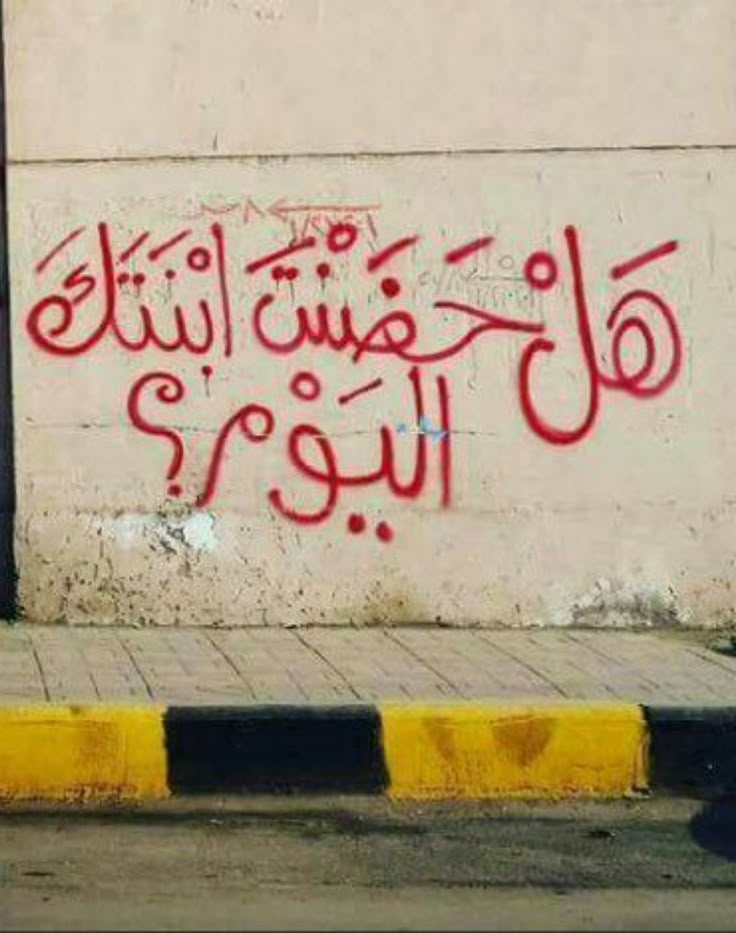 هَلْ حَضَنْتَ ابْنَتَكَ
الْيَوْم؟